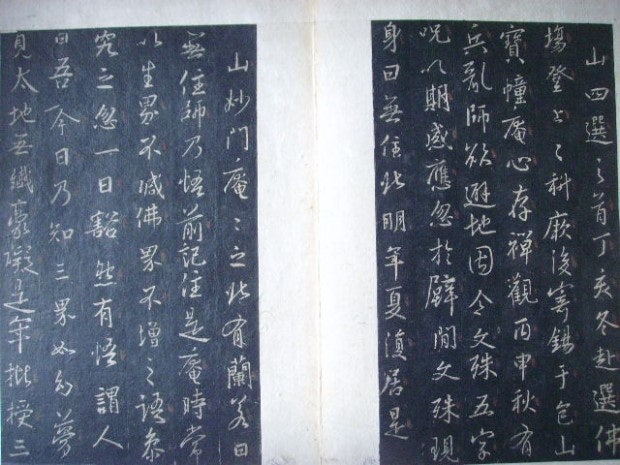 山四選之首丁亥冬赴選佛
場登上々科厥後寄錫于包山
寶幢庵心存禪觀丙申秋有
兵亂師欲避地因念文殊五字
呪以期感應忽於壁間文殊現
身曰無住此明年夏復居是
山妙门庵々之北有蘭若曰
無住師乃悟前記住是庵時常
以生界不減佛界不增之語參
究之忽一日豁然有悟謂人
曰吾今日乃知三界如幻夢
見大地無纖毫礙是年授三